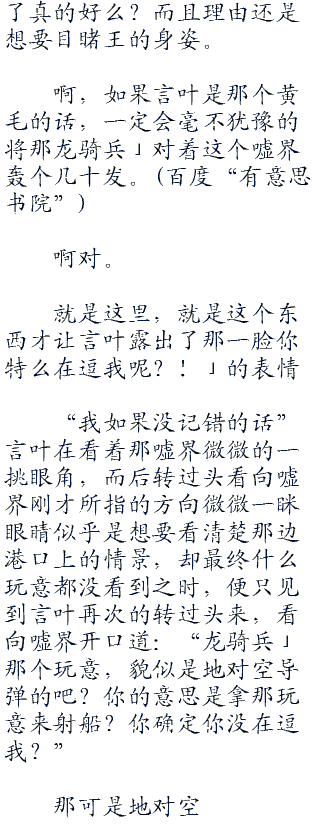 了真的好么？而且理由还是
想要目睹王的身姿。
啊，如果言叶是那个黄
毛的话，一定会毫不犹豫的
将那龙骑兵」对着这个嘘界
轰个几十发。(百度“有意思
书院”)
啊对。
就是这里，就是这个东
西才让言叶露出了那一脸你
特么在逗我呢？！」的表情
“我如果没记错的话”
言叶在看着那嘘界微微的一
挑眼角，而后转过头看向嘘
界刚才所指的方向微微一眯
眼睛似乎是想要看清楚那边
港口上的情景，却最终什么
玩意都没看到之时，便只见
到言叶再次的转过头来，看
向嘘界开口道：“龙骑兵」
那个玩意，貌似是地对空导
弹的吧？你的意思是拿那玩
意来射船？你确定你没在逗
我？”
那可是地对空